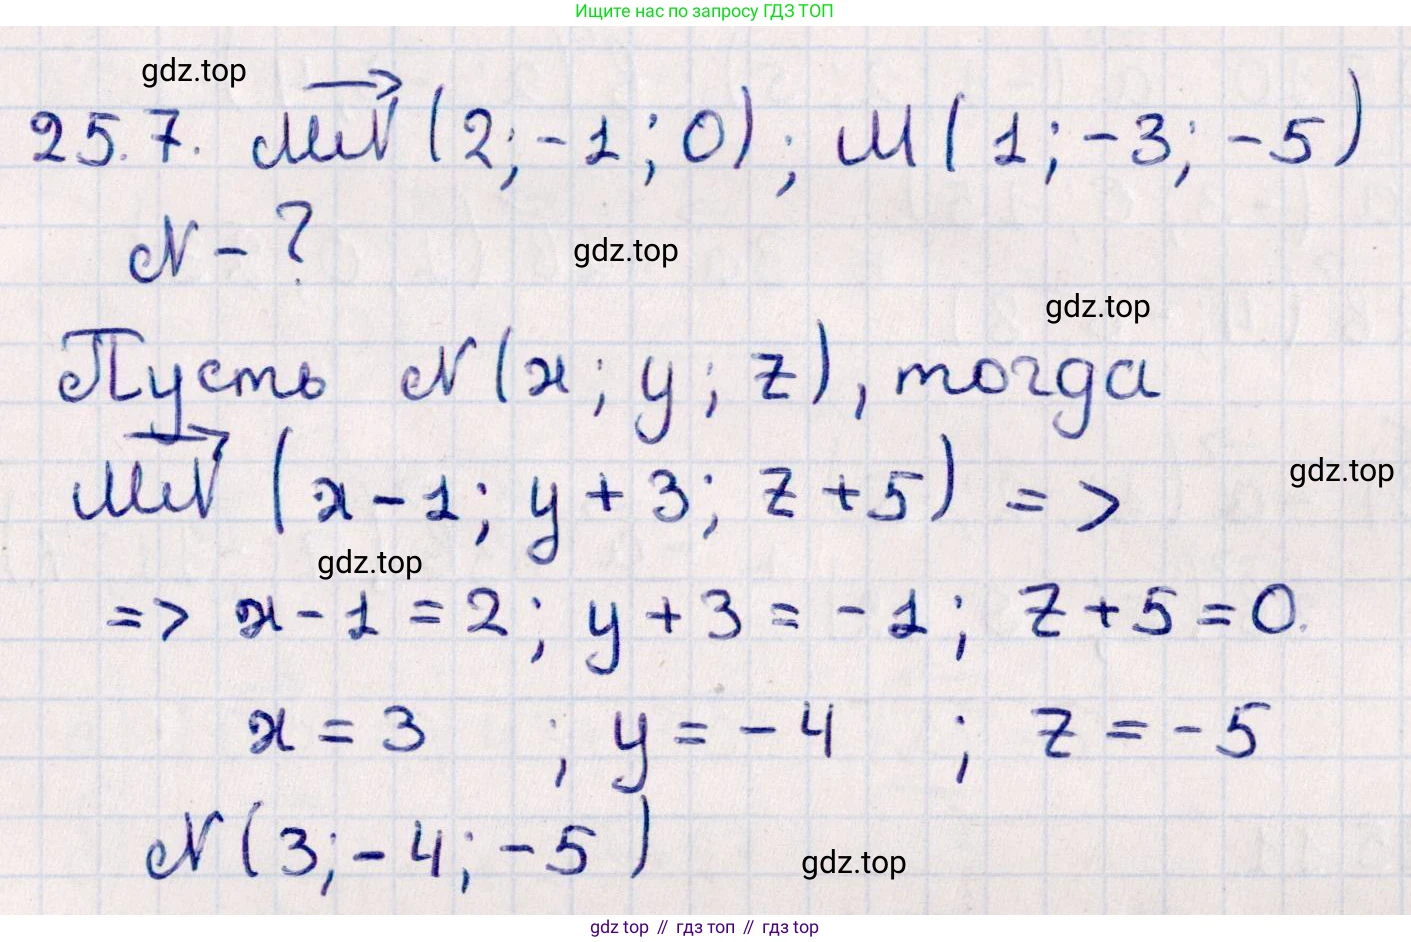 Ищите нас по запросу ГДЗ ТОП
gdz.top
25.7. MN (2; -1; 0); M (1; -3; -5)
N - ?
gdz.top
gdz.top
Пусть N (x; y; z), тогда
MN (x - 1; y + 3; z + 5) =>
gdz.top
gdz.top
=> x - 1 = 2; y + 3 = -1; z + 5 = 0.
x = 3 ; y = -4 ; z = -5
N (3; -4; -5)
gdz.top
gdz top // гдз топ // гдз top